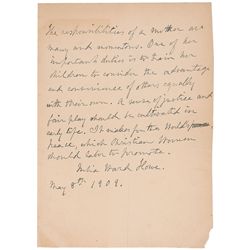 The responsibilities of a mother are
many and momentous. One of her
important duties is to train her
children to consider the advantage
and convenience of others equally
with their own. A sense of justice and
fair play should be cultivated in
early life. It makes for the World's
peace, which Christian Women
should labor to promote.
Julia Ward Howe.
May 8th 1909.